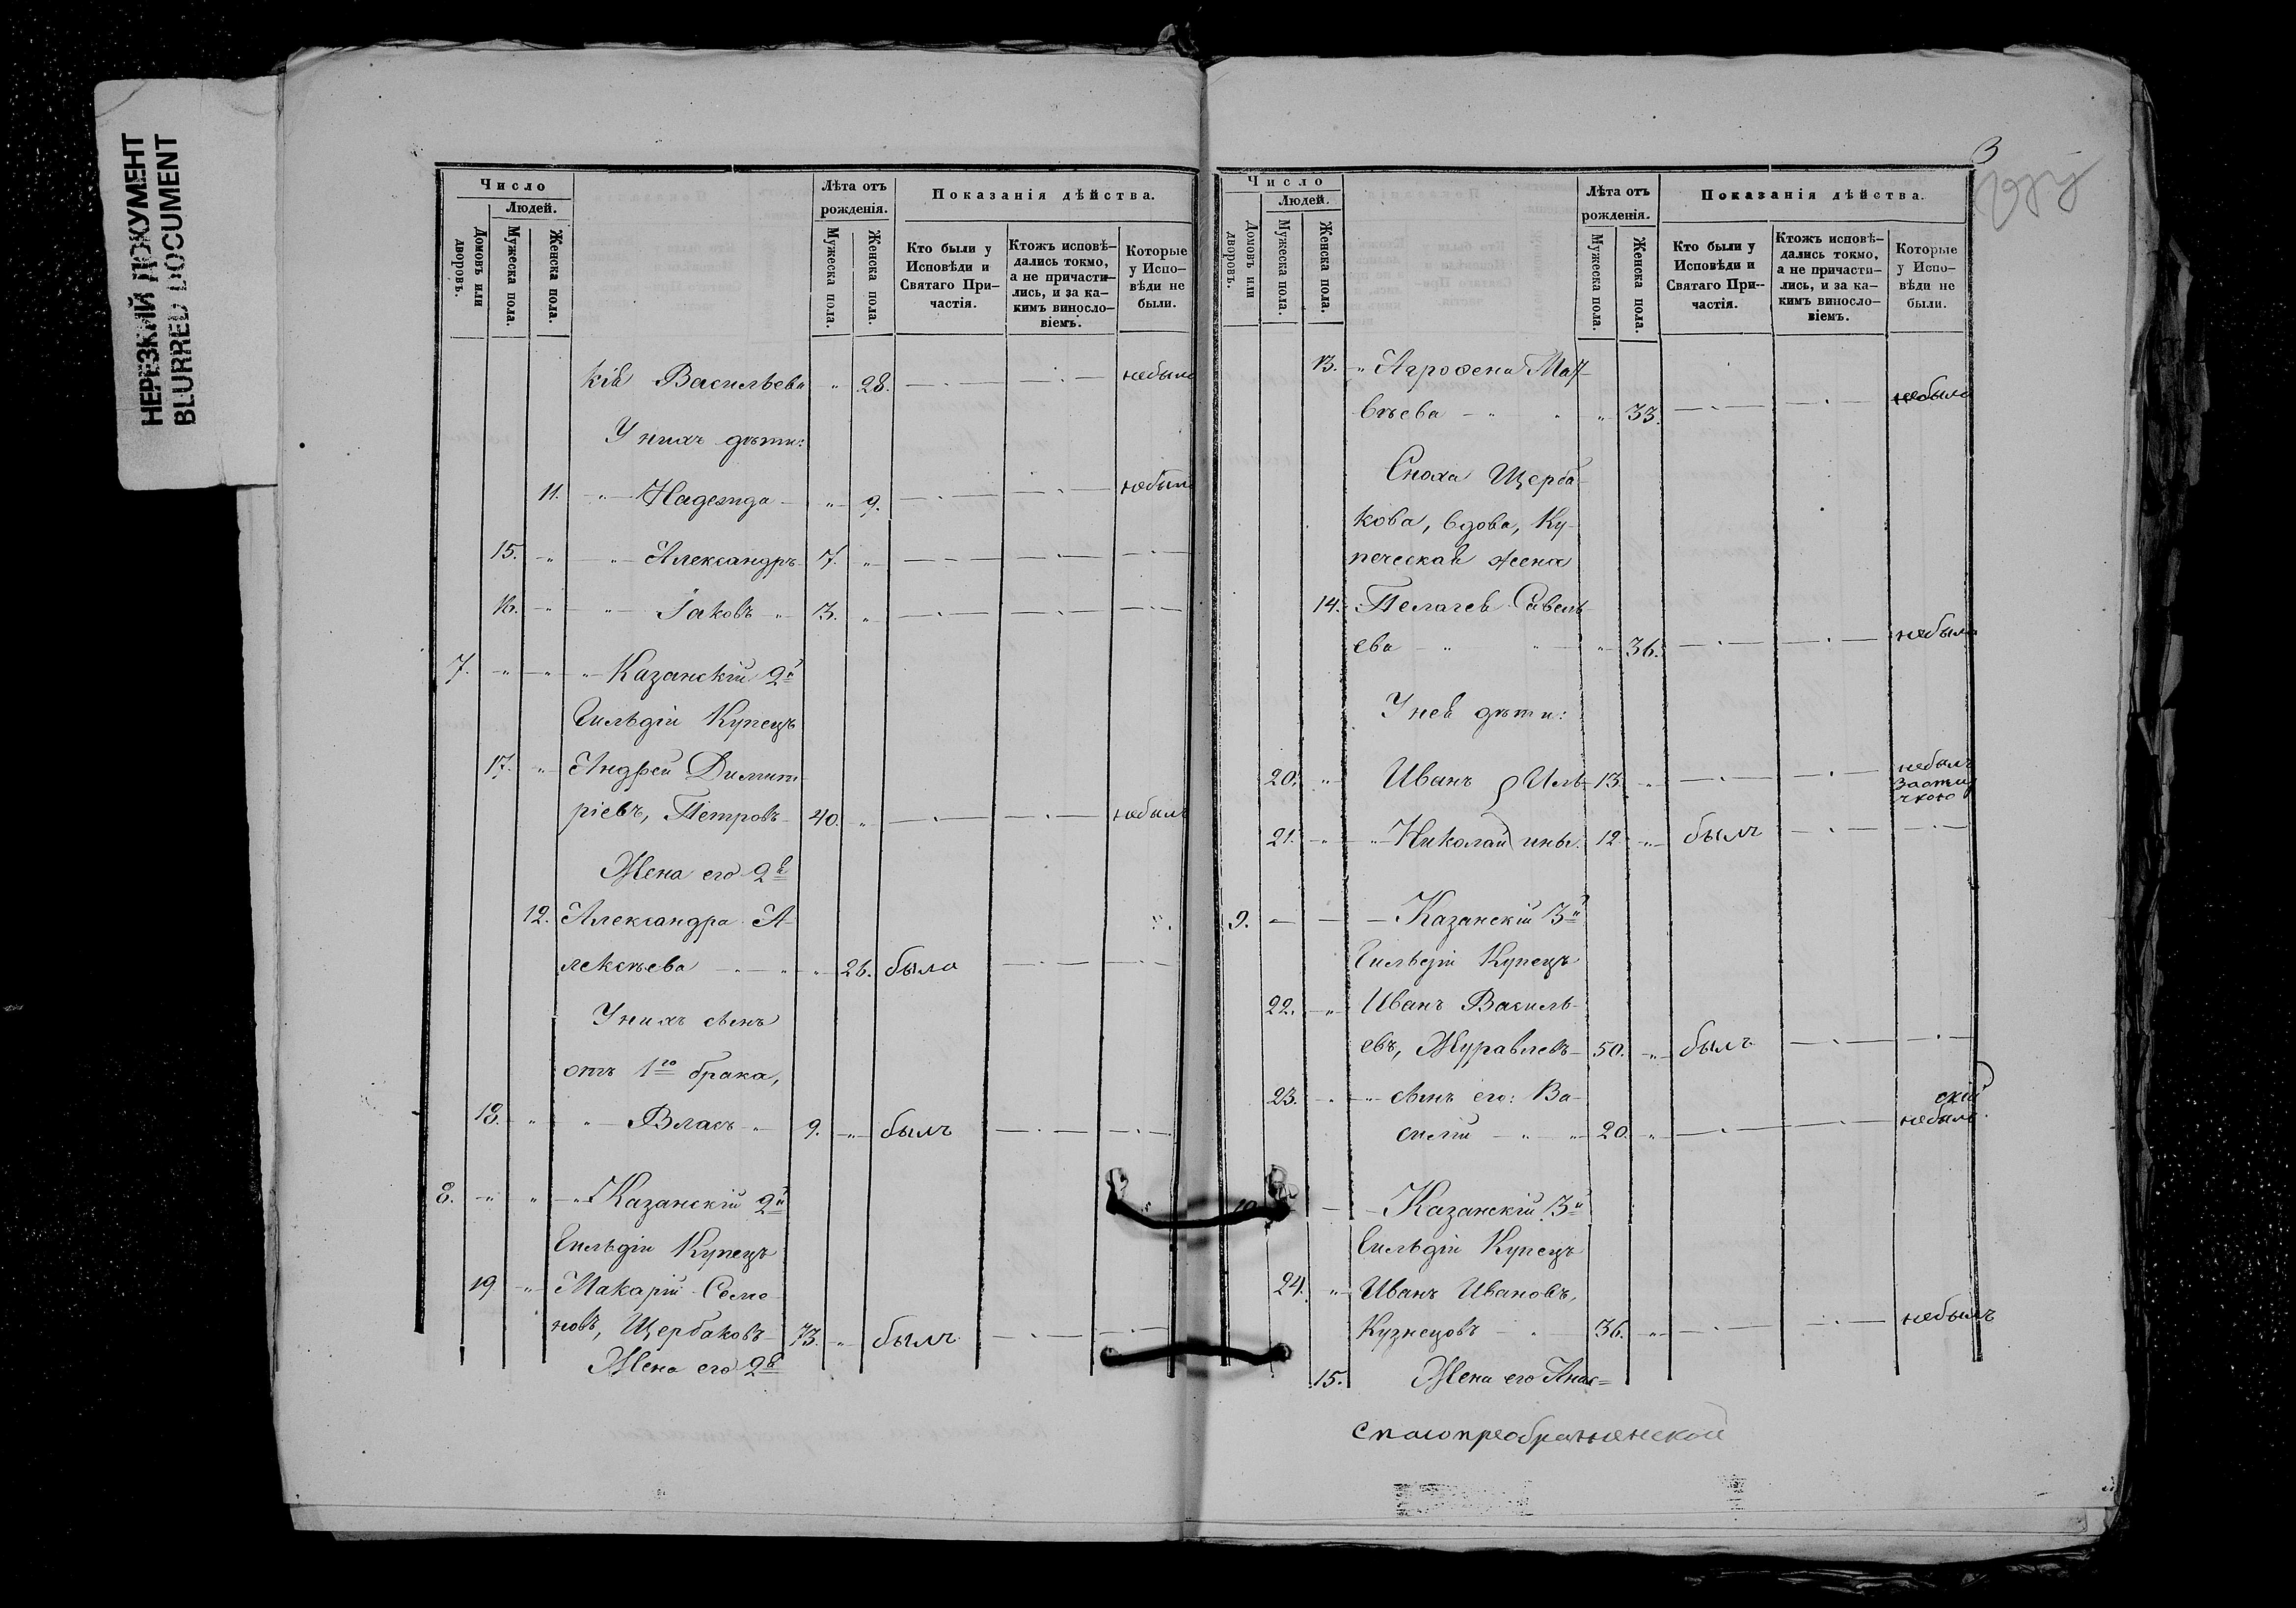 НЕРЕЗКИЙ ДОКУМЕНТ
BLURRED DOCUMENT
Число
Людей.
Домовъ или дворовъ.
Мужеска пола.
Женска пола.
Лѣта отъ рожденія.
Мужеска пола.
Женска пола.
Показанія дѣйства.
Кто были у Исповѣди и Святаго Причастія.
Ктожъ исповѣдались токмо, а не причастились, и за какимъ винословіемъ.
Которые у Исповѣди не были.
кія Васильева " 28. небыла
У нихъ дѣти:
11. " Надежда " 9. небыла
15. " " Александръ 7. "
16. " " Іаковъ " 3. "
7. " " " Казанскій 2й
Гильдіи Купецъ
17. " Андрей Димит
ріевъ, Петровъ 40. " небылъ
Жена его 2я
12. Александра А-
лексѣева " " " 26. была
У нихъ сынъ
отъ 1го брака,
18. " " Власъ " 9. " былъ
8. " " " Казанскій 2й
Гильдіи Купецъ
19 " Макарій Семе
новъ, Щербаковъ 73. " былъ
Жена его 2я
3
Число
Людей.
Домовъ или дворовъ.
Мужеска пола.
Женска пола.
Лѣта отъ рожденія.
Мужеска пола.
Женска пола.
Показанія дѣйства.
Кто были у Исповѣди и Святаго При-частія.
Ктожъ исповѣдались токмо, а не причастились, и за какимъ винословіемъ.
Которые у Исповѣди не были.
13. " Агрофена Мат
вѣева " " " 33. небыла
Сноха Щерба
кова, вдова, Ку-
печеская жена
14. Пелагея Савель
ева " " " 36. небыла
У нея дѣти:
20. " Иванъ Иль- 13. " небылъ
за отлу
чкою
21. " " Николай ины. 12. " былъ
9. Казанскій 3й
Гильдіи Купецъ
22. " Иванъ Василь-
евъ, Журавлевъ 50. " былъ
23. " " сынъ его: Ва-
силій " " 20. " небылъ
10. Казанскій 3й
Гильдіи Купецъ
24. " Иванъ Ивановъ,
Кузнецовъ " 36. " небылъ
15. Жена его Анас=
Спасопреображенской